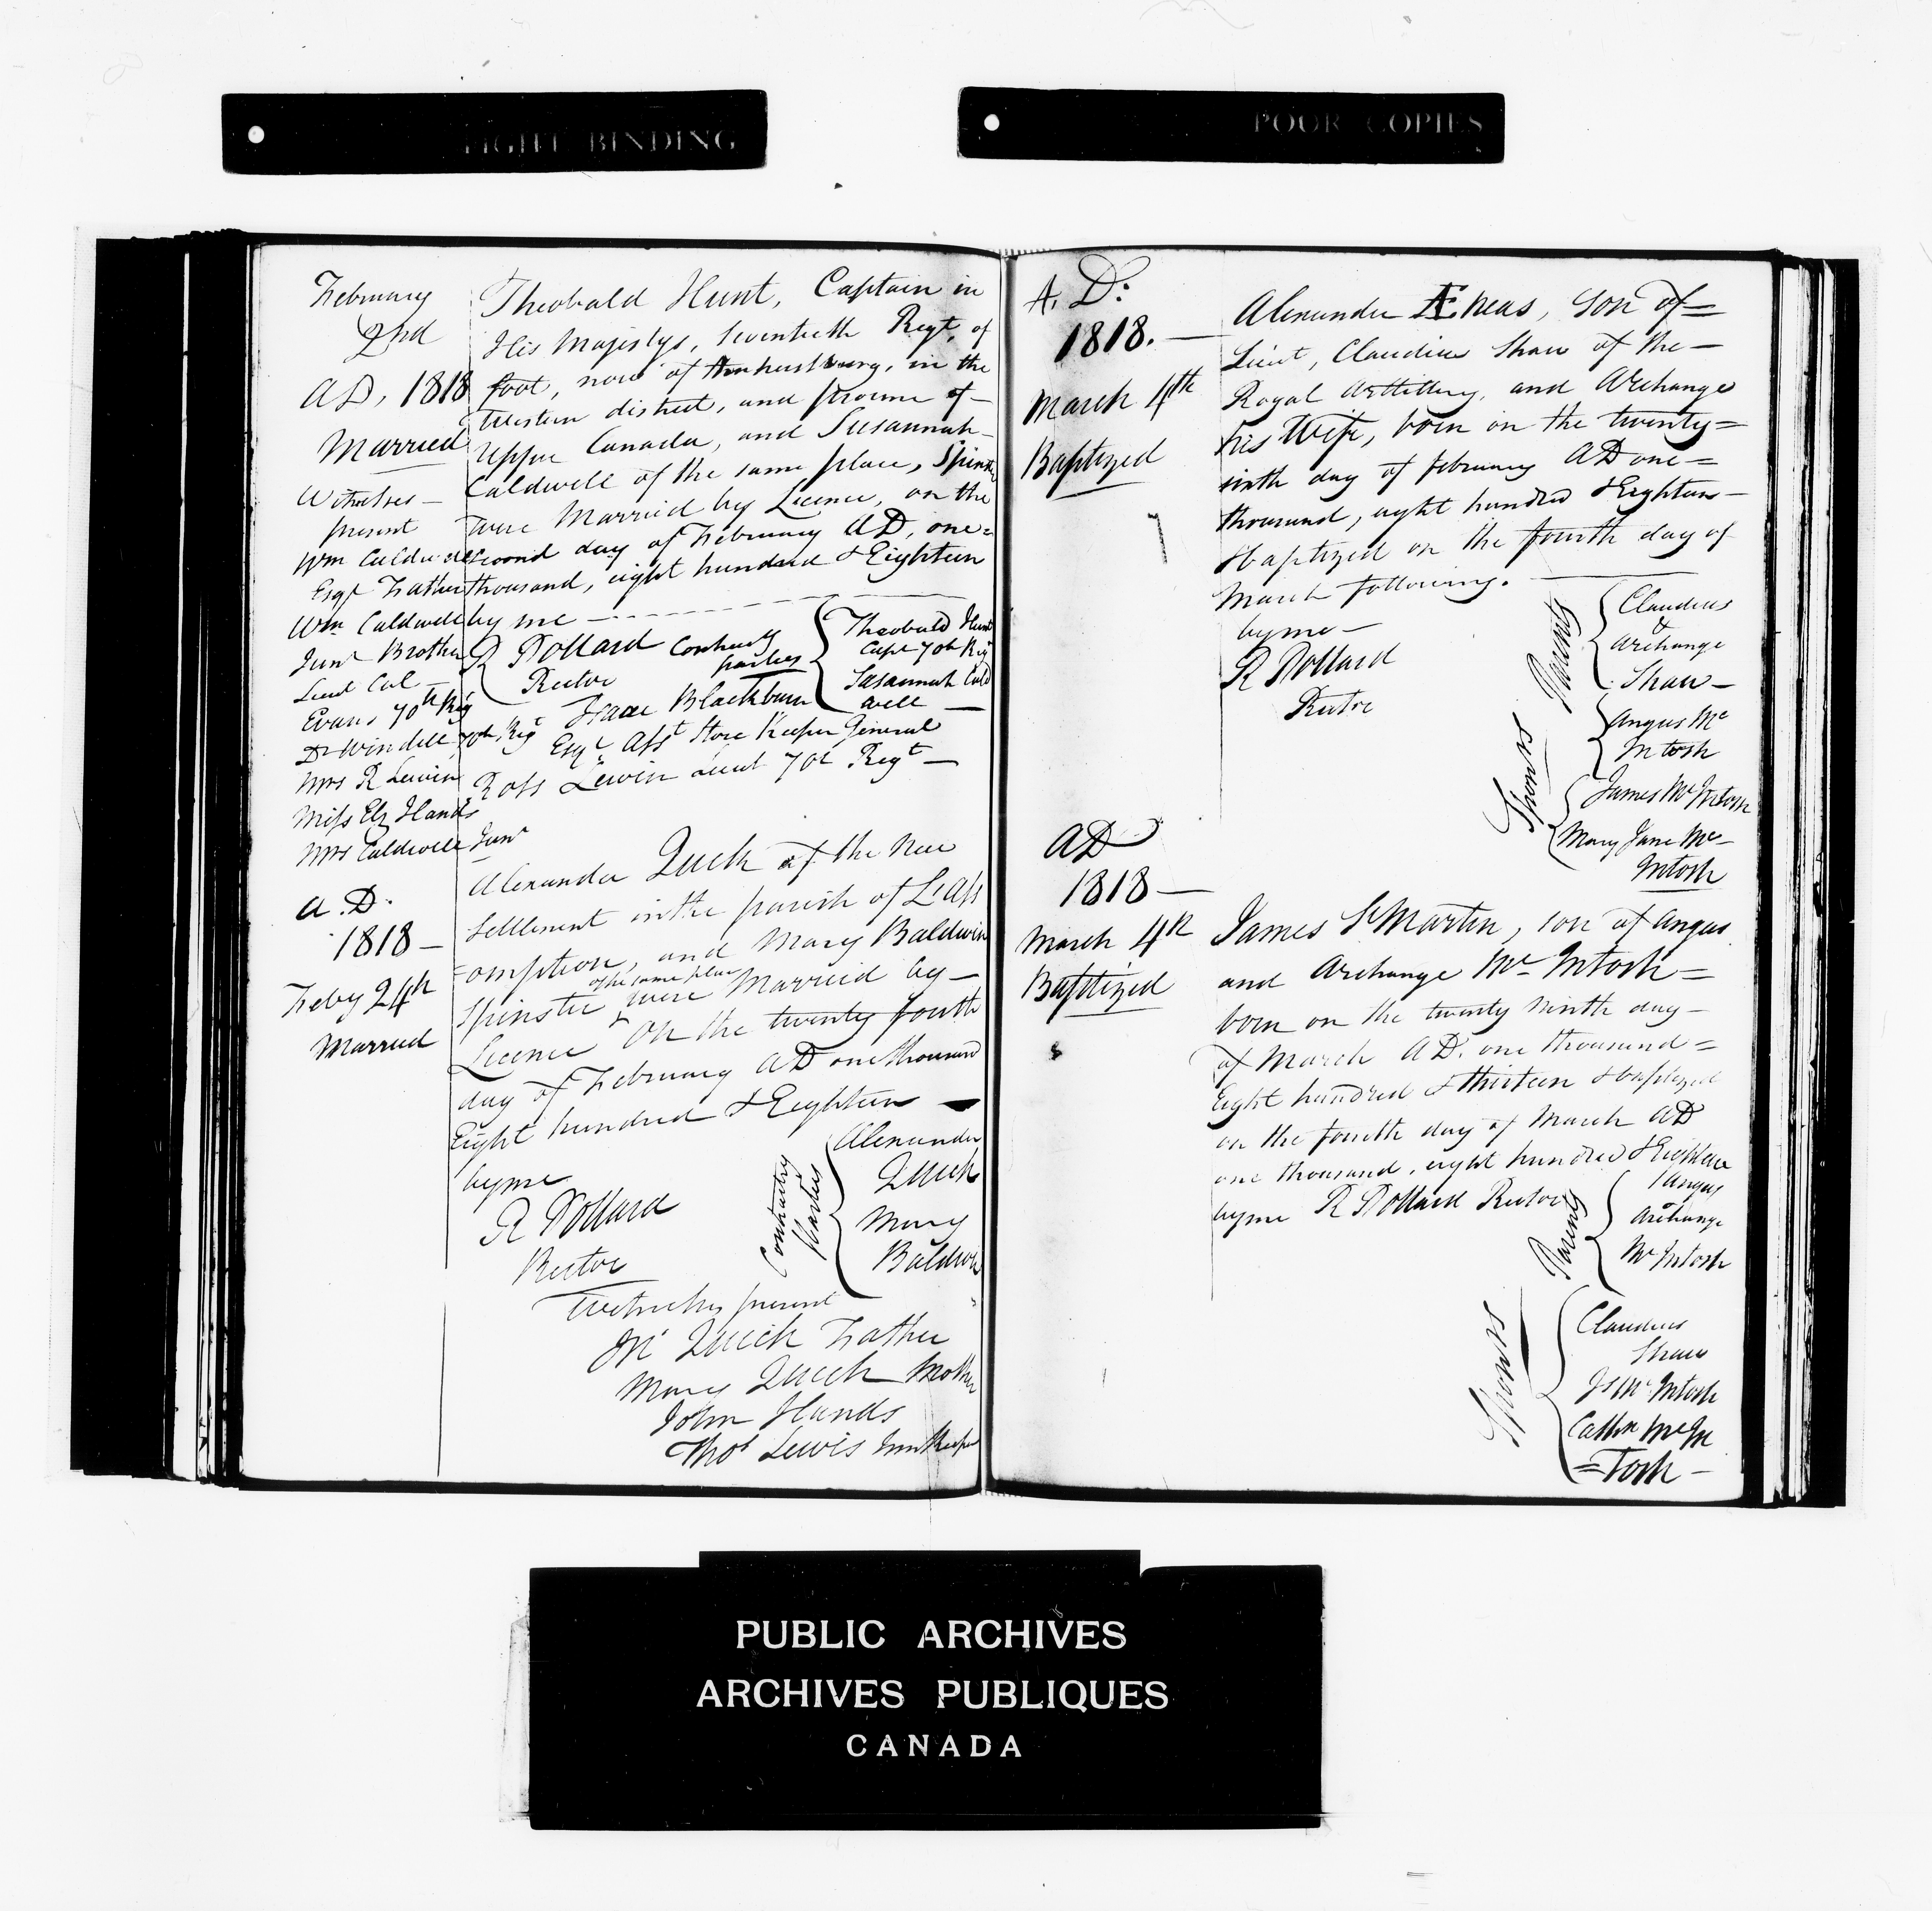 TIGHT BINDING
POOR COPIES
February
2nd
AD, 1818
Married
Witnesses —
present
Wm Caldwell
Esqr Father
Wm Caldwell
Junr Brother
Lieut Col —
Evans 70th Reg
Dr Windell 70th Reg
Mrs R Lewin
Miss Elz Hands
Mrs Caldwell Junr
Theobald Hunt, Captain in
His Majestys, Seventieth Regt, of
foot, now of Amherstburg, in the
Western district, and province of —
Upper Canada, and Susannah
Caldwell of the same place, Spinster
were Married by Licence, on the
second day of February AD, one =
thousand, eight hundred & Eighteen
by me —
R Pollard
Rector
Contracting
parties
Theobald Hunt
Capt 70th Reg
Susannah Cald
well —
Isaac Blackburn
Esqr Asst Store Keeper General
Ross Lewin Lieut 70th Regt —
A. D.
1818 —
Feby 24th
Married
Alexander Quick of the New
Settlement in the parish of L'Ass
= omption, and Mary Baldwin
of the same place
Spinster were Married by —
Licence on the twenty fourth
day of February AD one thousand
Eight hundred & Eighteen —
by me
R Pollard
Rector
Contracting
Parties
Alexander
Quick
Mary
Baldwin
Witnesses present
Quick Father
Mary Quick Mother
John Hands
Thos Lewis Inn Keeper
A. D:
1818. —
March 4th
Baptized
Alexander Æneas, Son of =
Lieut, Claudius Shaw of the —
Royal Artillery, and Archange
his Wife, born on the twenty =
sixth day of February AD one =
thousand, eight hundred & Eighteen —
& baptized on the fourth day of
March following. —
by me —
R Pollard
Rector
Parents
Claudius
&
Archange
Shaw —
Sponsors
Angus Mc
Intosh
James McIntosh
Mary Jane Mc —
Intosh
AD
1818 —
March 4th
Baptized
James St Martin, son of Angus
and Archange McIntosh =
born on the twenty ninth day —
of March AD. one thousand =
Eight hundred & thirteen & baptized
on the fourth day of March AD
one thousand, eight hundred & Eighteen
by me R Pollard Rector
Parents
Angus
Archange
McIntosh
Sponsors
Claudius
Shaw
Js McIntosh
Cathn McIn
= tosh —
PUBLIC ARCHIVES
ARCHIVES PUBLIQUES
CANADA